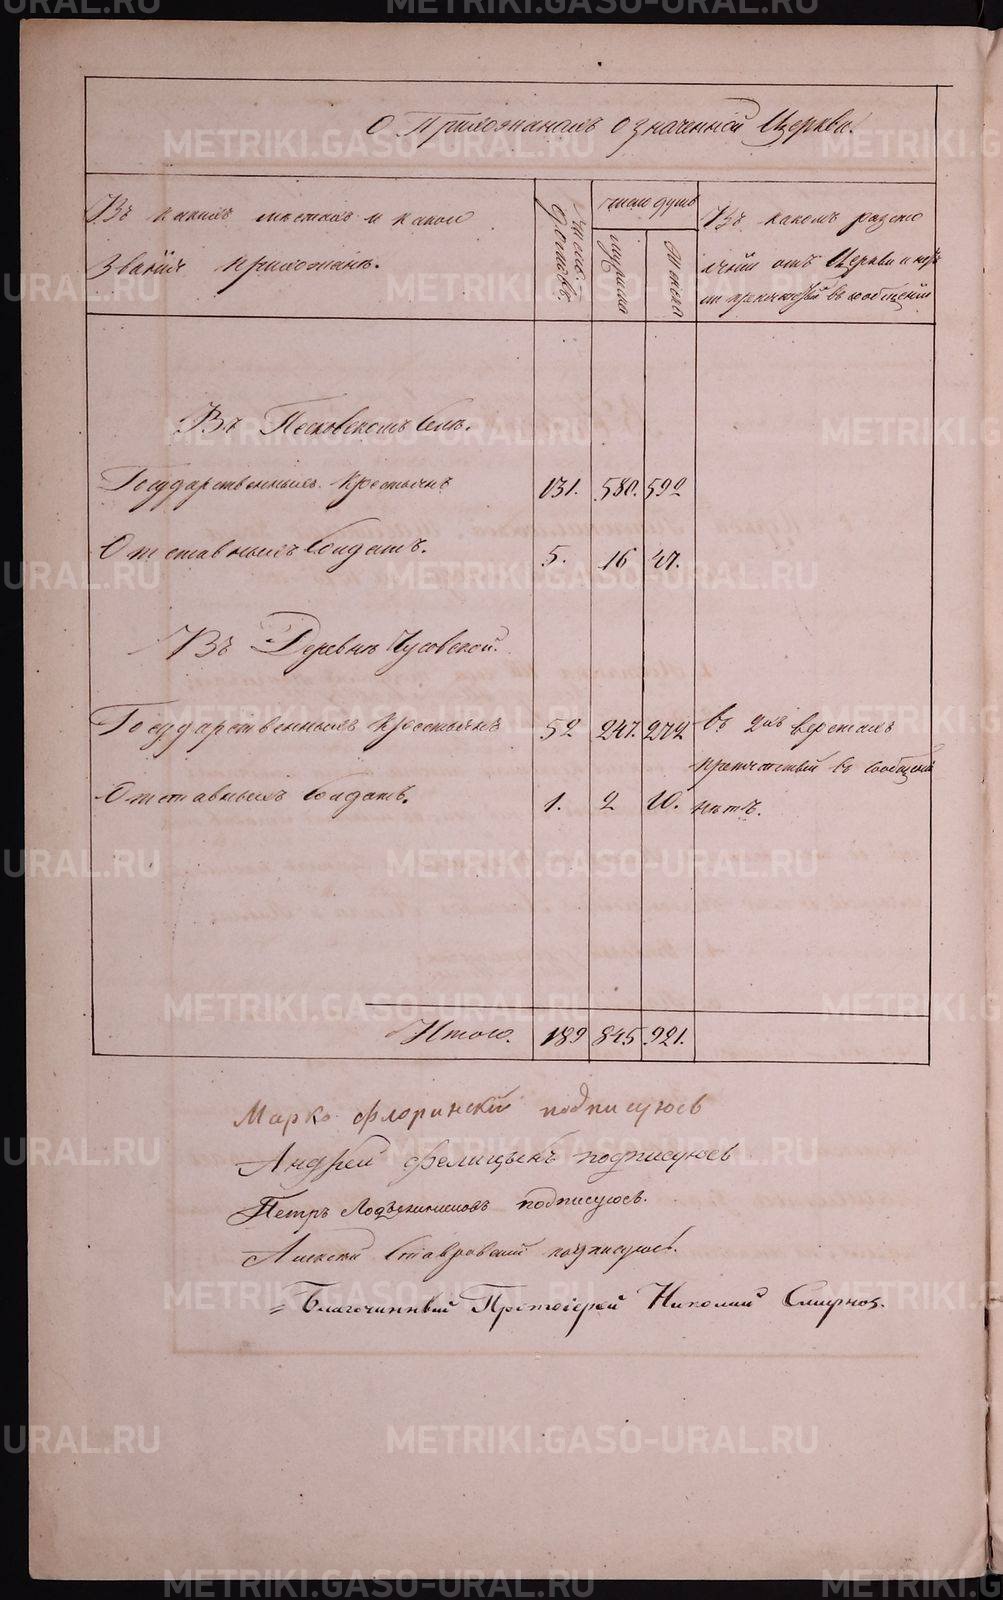 О Прихожанахъ означенной Церкви.
Въ какихъ мѣстахъ и какого
званія прихожане.
Число дворовъ.
Число душъ
мужеска
женска
Въ какомъ разсто
яніи отъ Церкви и нѣтъ
ли препятствій въ сообщеніи
Въ Песковскомъ селѣ.
Государственныхъ крестьянъ 131. 580. 592
Отставныхъ Солдатъ. 5. 16 47.
Въ Деревнѣ Чусовской.
Государственныхъ крестьянъ 52 247. 272 Въ 2хъ верстахъ
препятствій въ сообщеніи
Отставныхъ Солдатъ. 1. 2 10. нѣтъ.
Итого. 189 845 921.
Марко Флоринскій подписуюсь
Андрей подписуюсь
Петръ подписуюсь.
Алексѣй Ставровскій подписуюсь.
Благочинный Протоіерей Николай Смирнов.
METRIKI.GASO-URAL.RU